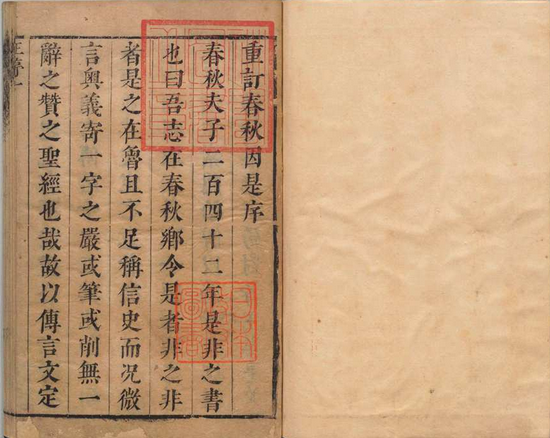 重訂春秋因是序
春秋夫子二百四十二年是非之書
也曰吾志在春秋鄉令是者非之非
者是之在魯且不足稱信史而況微
言奧義寄一字之嚴或筆或削無一
辭之贊之聖經也哉故以傳言文定